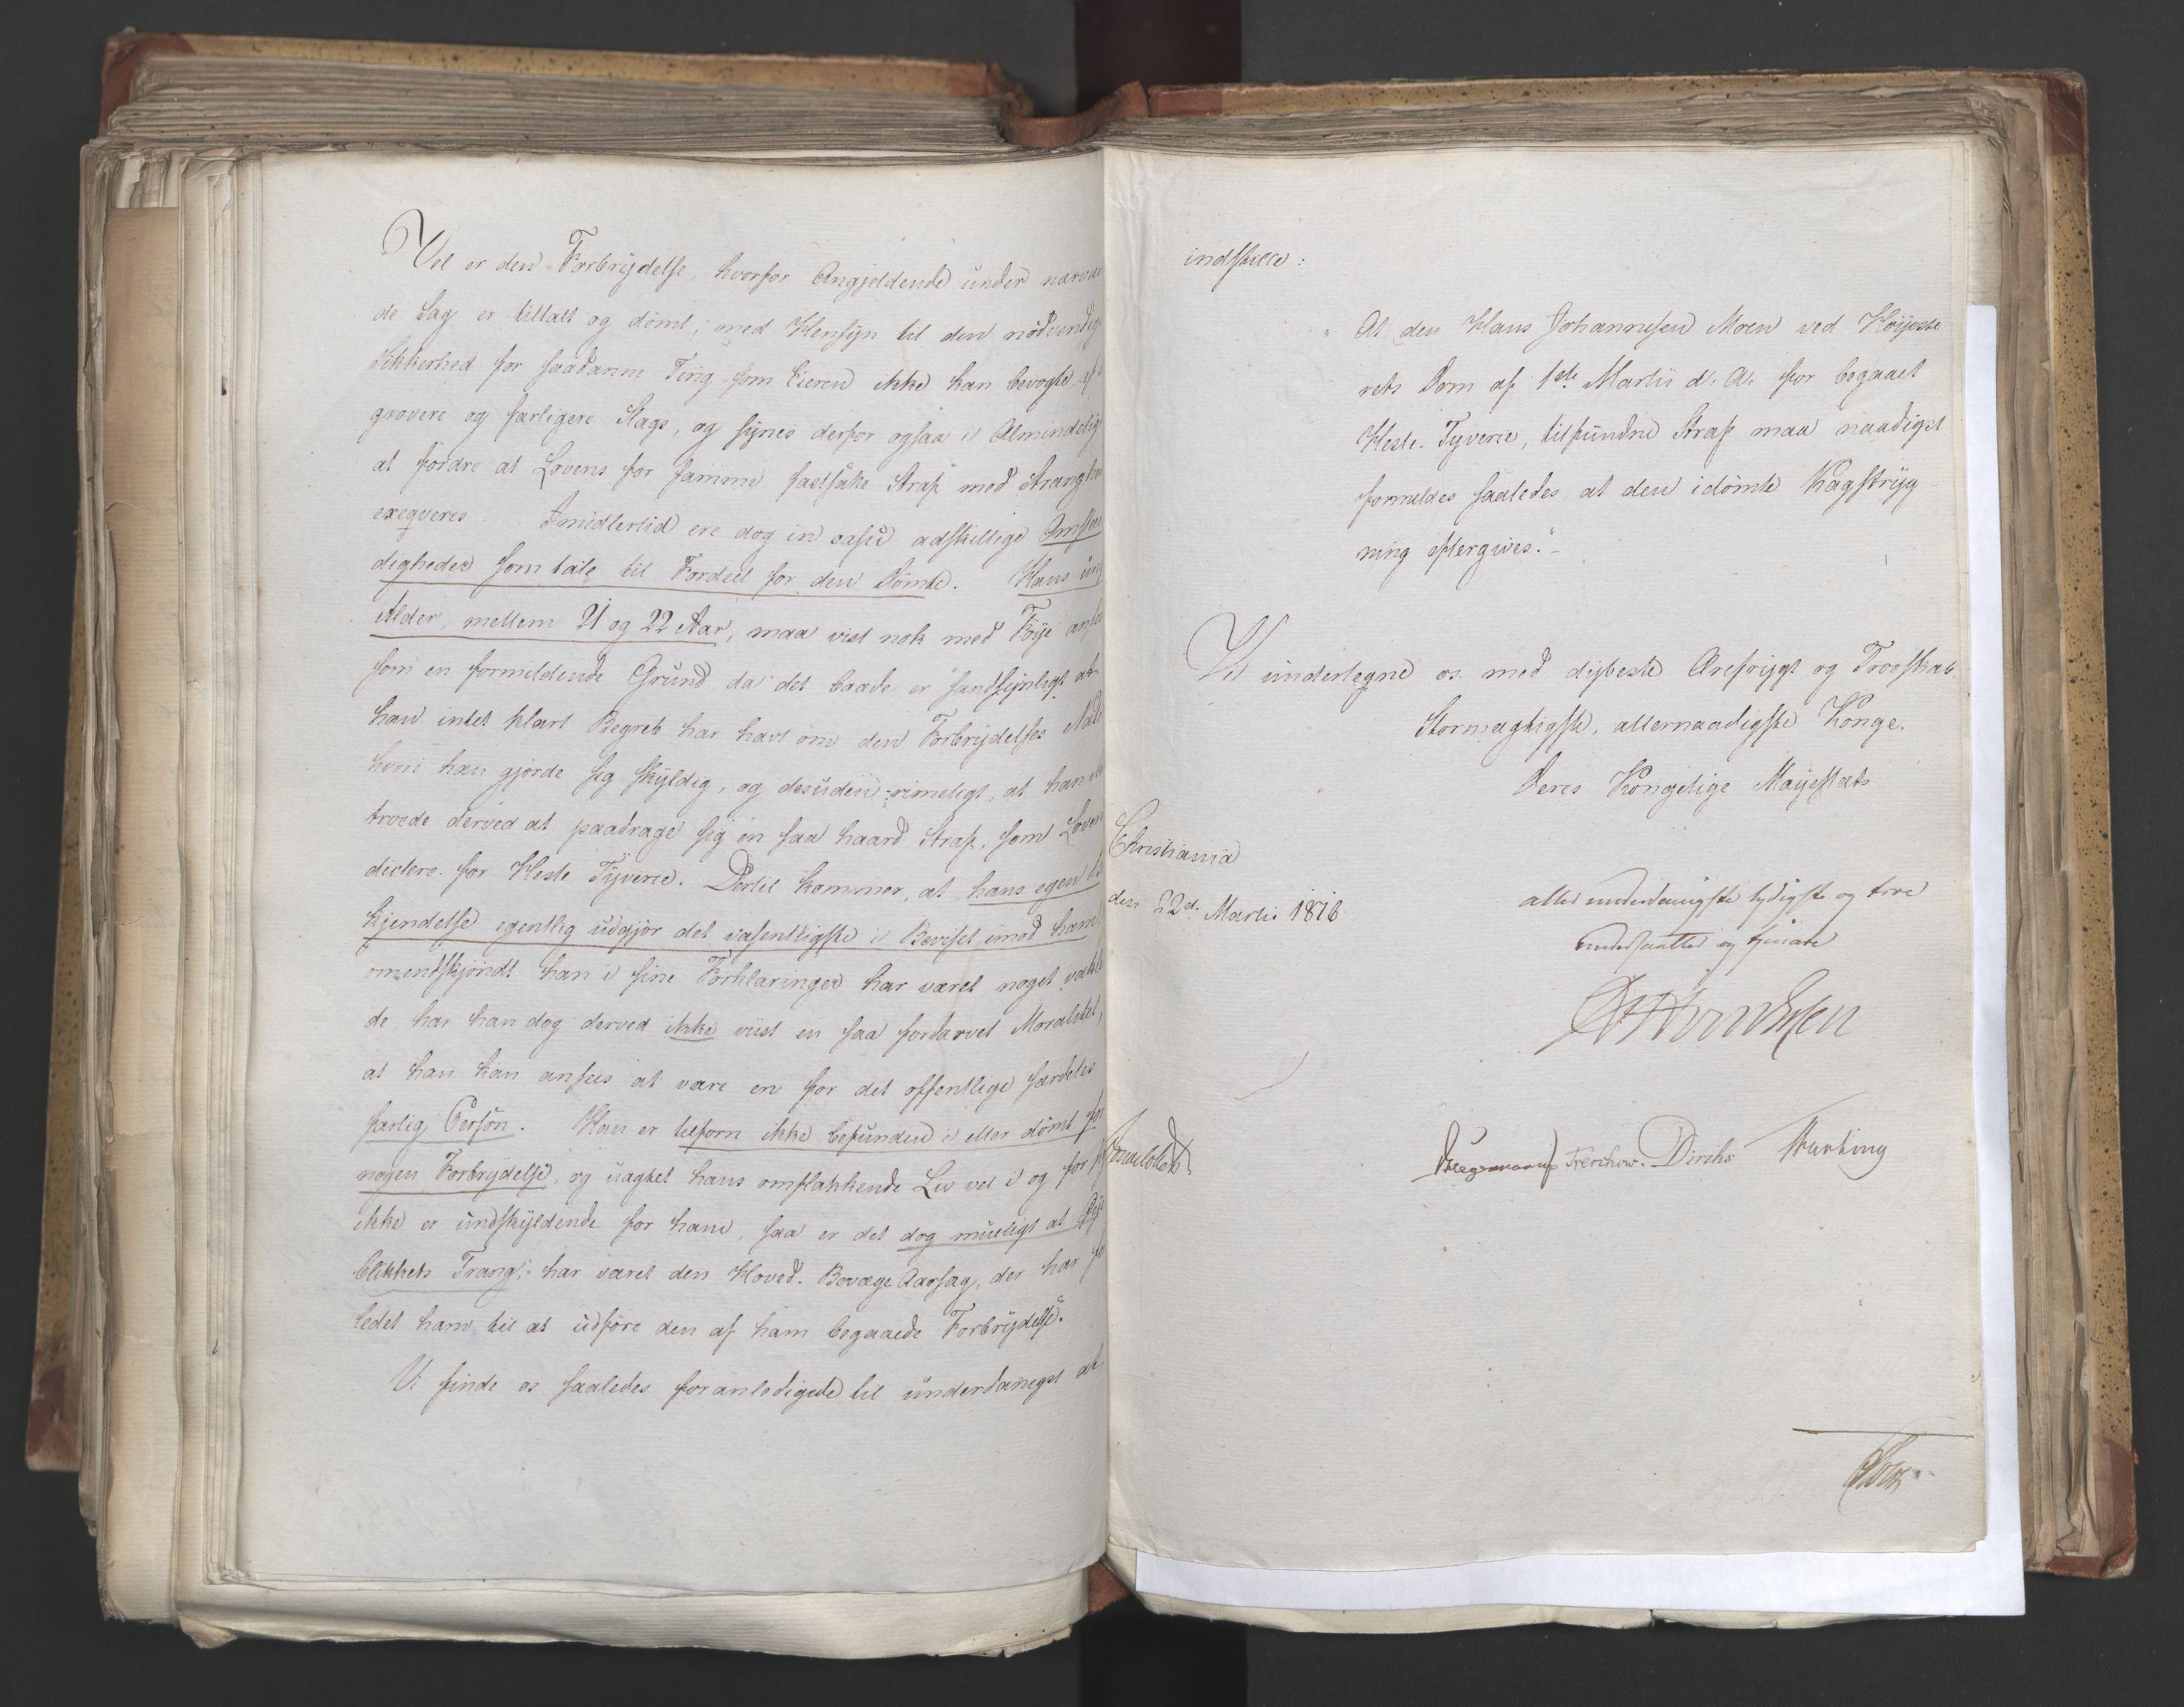 Vel er den Forbrydelse, hvorfor Angjeldende under nærvæ
de Sag er tiltalt og dömt, med Hensyn til den nödvendige
Sikkerhed for saadanne Ting som Eieren ikke kan bevogte, af
grovere og farligere Slags, og synes derfor ogsaa i Almindelig
at fordre at Lovens for samme fastsatte Straf med Stræng
exeqveres. Imidlertid ere dog in casu adskillige Omstæn
digheder som tale til Fordeel for den Dömte. Hans ung
Alder, mellem 21 og 22 Aar, maa vist nok med Föye ansees
som en formildende Grund da det baade er sandsynligt at
han intet klart Begreb har havt om den Forbrydelses
hvori han gjorde sig skyldig, og desuden rimeligt, at han
troede derved at paadrage sig en saa haard Straf, som Loven
dictere for Heste Tyverie. Dertil kommer, at hans egen
kjendelse egentlig udgjör det væsentligste i Beviset imod ham
omendskjöndt han i sine Forklaringer har været noget vakle
de, har han dog derved ikke viist en saa fordærvet Moralitet,
at han kan ansees at være en for det offentlige særdeles
farlig Person. Han er tilforn ikke befunden i eller dömt for
nogen Forbrydelse, og uagtet hans omflakkende Liv vel i og for
ikke er undskyldende for ham, saa er det dog mueligt at Öye
blikkets Trang har været den Hoved-Bevæge Aarsag, der har
ledet ham til at udföre den af ham begaaede Forbrydelse.
Vi finde os saaledes foranledigede til underdanigst at
indstille:
"At den Hans Johannesen Moen ved Höyeste
rets Dom af 1ste Martii d: A: for begaaet
Heste-Tyverie, tilfundne Straf maa naadigst
formildes saaledes, at den idömte Kagstryg-
ning eftergives."
Vi undertegne os med dybeste Ærefrygt og Troeskab
Stormægtigste, allernaadigste Konge.
Deres Kongelige Mayestæts
Christiania
den 22d. Martii 1816
allerunderdanigste lydigste og troe
undersaatter og tjenere
Formildet
Treschow. Diriks